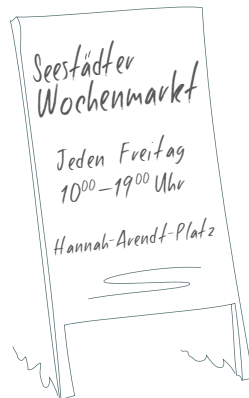 Seestädter
Wochenmarkt
Jeden Freitag
10⁰⁰–19⁰⁰ Uhr
Hannah-Arendt-Platz